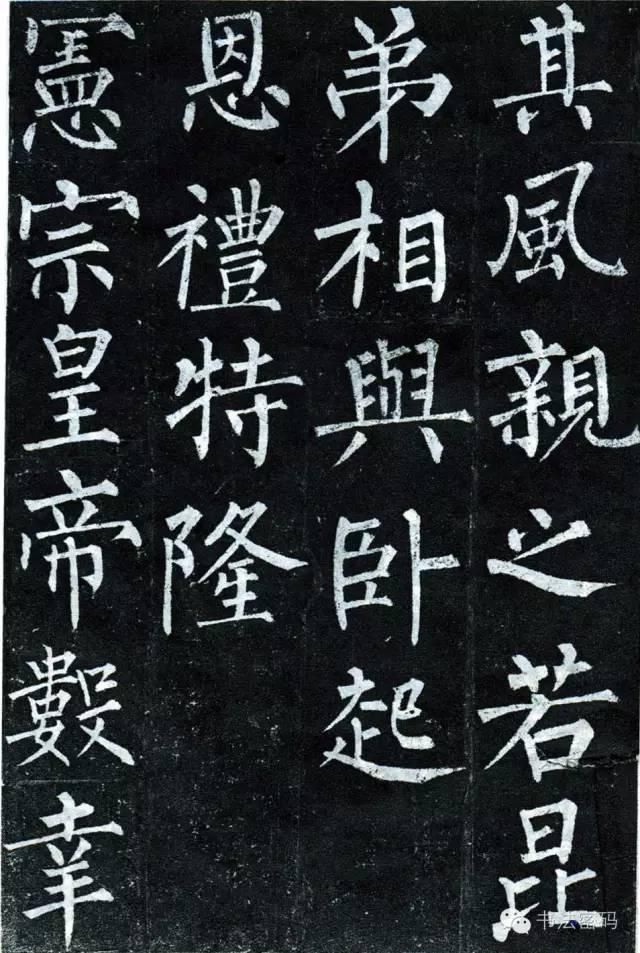 其風親之若昆
弟相與卧起
恩禮特隆
憲宗皇帝數幸
书法密码